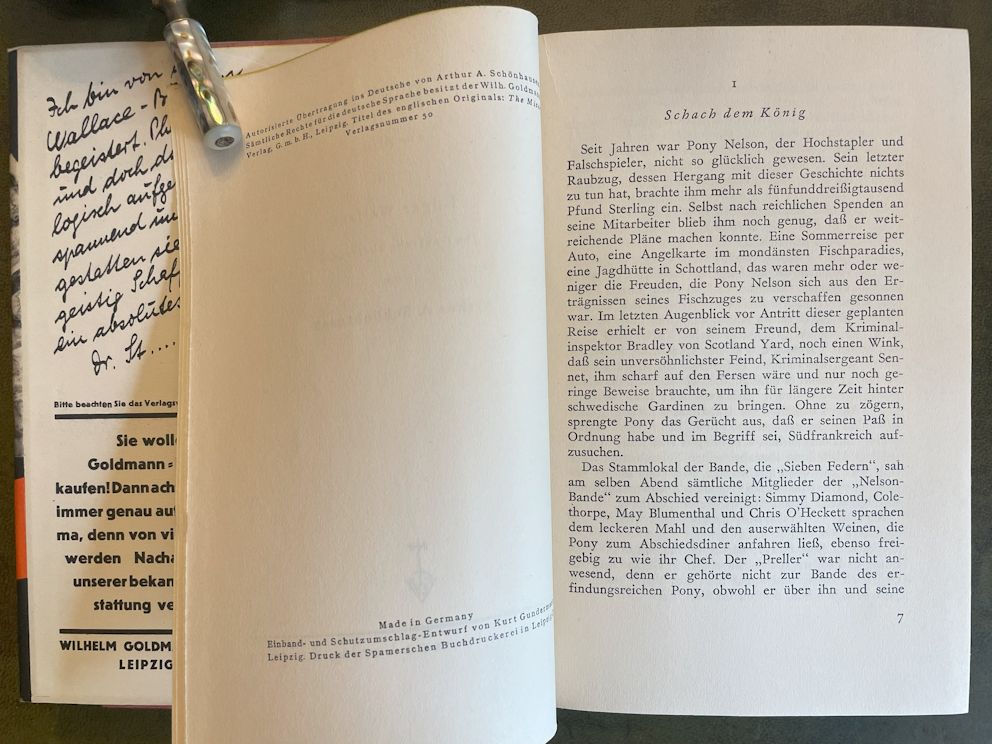 Ich bin von
Wallace-
begeistert.
und doch
logisch
spannend
gestatten sie
geistig
ein absolutes
Dr. St....
Bitte beachten Sie das
Sie
Goldmann-
kaufen! Dann
immer genau
ma, denn von
werden
unserer
stattung
WILHELM
LEIPZIG
Autorisierte Übertragung ins Deutsche von Arthur A.
Sämtliche Rechte für die deutsche Sprache besitzt der Wilh.
Verlag, G. m. b. H., Leipzig. Titel des englischen Originals: The
Verlagsnummer 50
Made in Germany
Einband- und Schutzumschlag-Entwurf von Kurt
Leipzig. Druck der Spamerschen Buchdruckerei in
1
Schach dem König
Seit Jahren war Pony Nelson, der Hochstapler und
Falschspieler, nicht so glücklich gewesen. Sein letzter
Raubzug, dessen Hergang mit dieser Geschichte nichts
zu tun hat, brachte ihm mehr als fünfunddreißigtausend
Pfund Sterling ein. Selbst nach reichlichen Spenden an
seine Mitarbeiter blieb ihm noch genug, daß er weit-
reichende Pläne machen konnte. Eine Sommerreise per
Auto, eine Angelkarte im mondänsten Fischparadies,
eine Jagdhütte in Schottland, das waren mehr oder we-
niger die Freuden, die Pony Nelson sich aus den Er-
trägnissen seines Fischzuges zu verschaffen gesonnen
war. Im letzten Augenblick vor Antritt dieser geplanten
Reise erhielt er von seinem Freund, dem Kriminal-
inspektor Bradley von Scotland Yard, noch einen Wink,
daß sein unversöhnlichster Feind, Kriminalsergeant Sen-
net, ihm scharf auf den Fersen wäre und nur noch ge-
ringe Beweise brauchte, um ihn für längere Zeit hinter
schwedische Gardinen zu bringen. Ohne zu zögern,
sprengte Pony das Gerücht aus, daß er seinen Paß in
Ordnung habe und im Begriff sei, Südfrankreich auf-
zusuchen.
Das Stammlokal der Bande, die „Sieben Federn“, sah
am selben Abend sämtliche Mitglieder der „Nelson-
Bande“ zum Abschied vereinigt: Simmy Diamond, Cole-
thorpe, May Blumenthal und Chris O'Heckett sprachen
dem leckeren Mahl und den auserwählten Weinen, die
Pony zum Abschiedsdiner anfahren ließ, ebenso frei-
gebig zu wie ihr Chef. Der „Preller“ war nicht an-
wesend, denn er gehörte nicht zur Bande des er-
findungsreichen Pony, obwohl er über ihn und seine
7